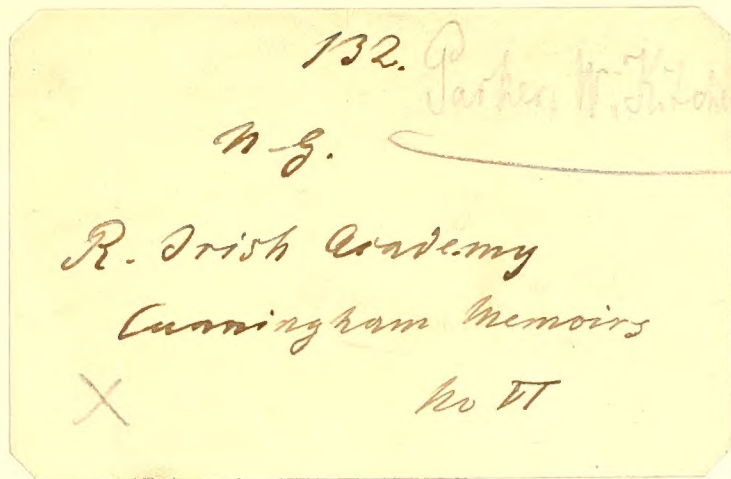 132.
Parker, W. Kitchen
N-G.
R. Irish Academy
Cunningham Memoirs
No VI
X